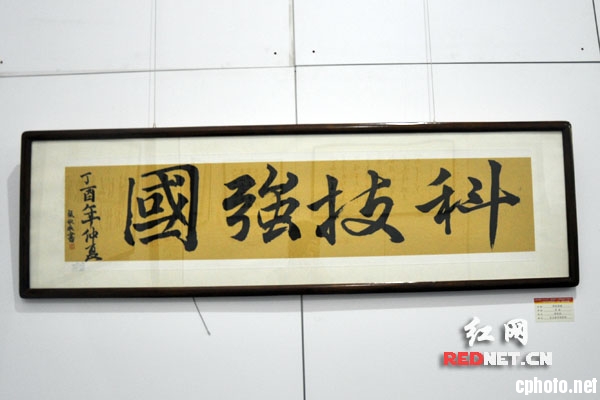 科技強國
丁酉年仲夏
红网
REDNET.CN
cphoto.net